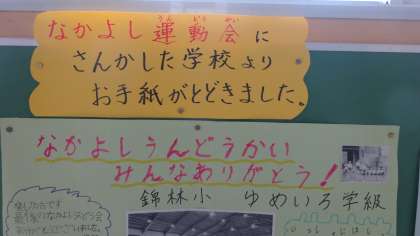 なかよし運動会に
うんどうかい
さんかした学校より
お手紙がとどきました。
なかよしうんどうかい
みんなありがとう！
錦林小 ゆめいろ学級